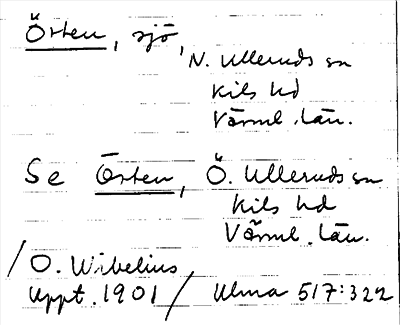 Örten, sjö,
N. Ulleruds sn
Kils hd
Värml. län.
Se Örten, Ö. Ulleruds sn
Kils hd
Värml. län.
/O. Wibelius
uppt. 1901/ Ulma 517:322